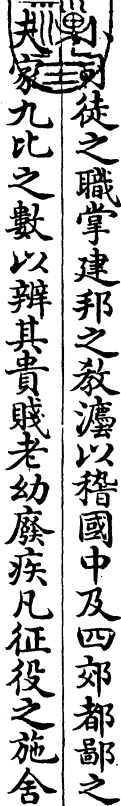 小司徒之職掌建邦之敎灋以稽國中及四郊都鄙之
夫家九比之數以辨其貴賤老幼廢疾凡征役之施舍